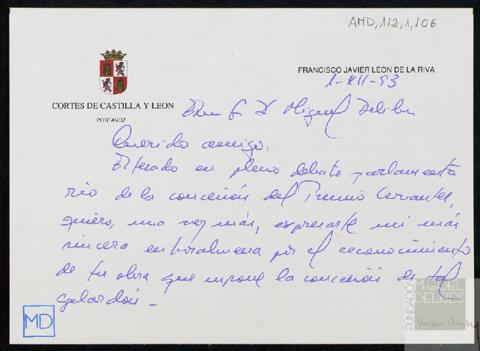 AMD, 112, 1, 106
FRANCISCO JAVIER LEON DE LA RIVA
1-XII-93
CORTES DE CASTILLA Y LEON
PORTAVOZ
Excmo S. D. Miguel Delibes
Querido amigo:
Enterado en pleno debate parlamenta
rio de la concesión del Premio Cervantes,
quiero, una vez más, expresarte mi más
sincera enhorabuena por el reconocimiento
de tu obra que supone la concesión de tal
galardón -
MD
FUNDACIÓN
MIGUEL
DELIBES